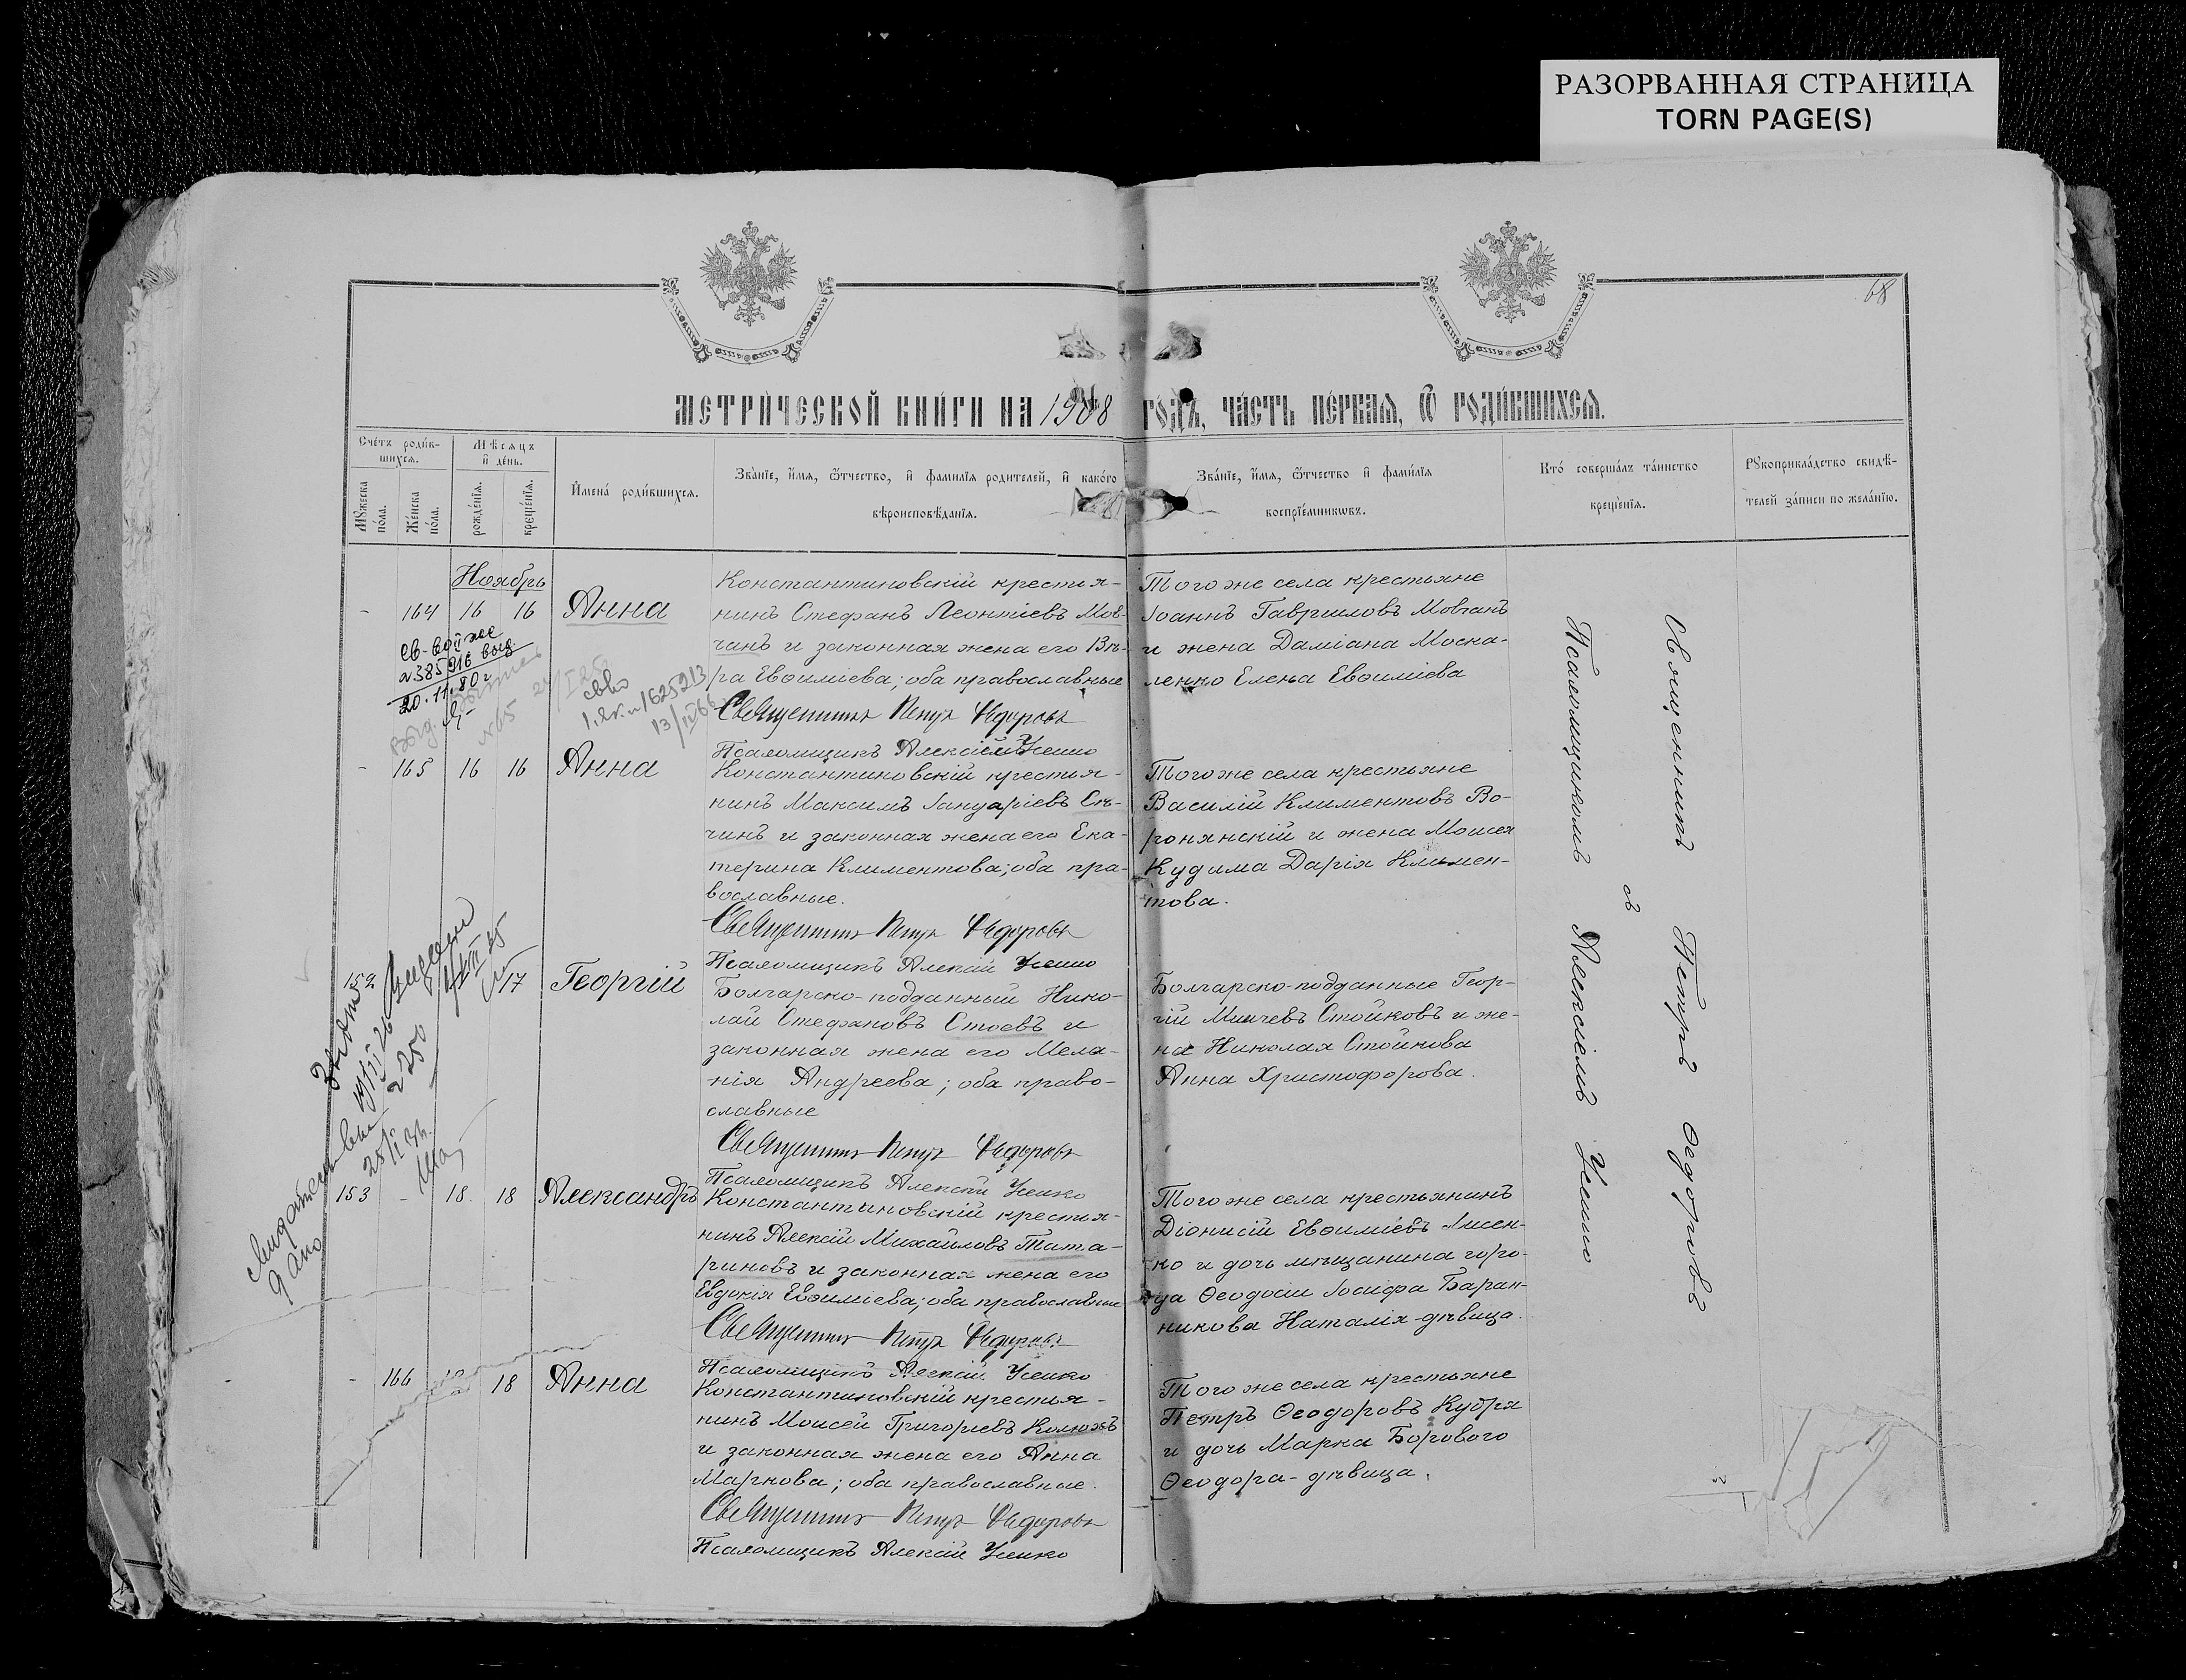 РАЗОРВАННАЯ СТРАНИЦА
TORN PAGE(S)
68
МЕТРИ́ЧЕСКОЙ КНИ́ГИ НА 1908 ГОДЪ, ЧА́СТЬ ПЕ́РВАѦ, Ѽ РОДИ́ВШИХСѦ.
Счétъ роди́в-
шихсѧ.
Мꙋ́жеска
по́ла.
Же́нска
по́ла.
Мѣ́сѧцъ
и҆ де́нь.
рожде́нїѧ.
креще́нїѧ.
И҆мена̀ роди́вшихсѧ.
Зва́нїе, и҆́мѧ, ѻ҆́тчество, и҆ фами́лїѧ роди́телей, и҆ како́го
вѣроисповѣ́данїѧ.
Зва́нїе, и҆́мѧ, ѻ҆́тчество и҆ фами́лїѧ
воспрїе́мникѡвъ.
Кто́ соверша́лъ та́инство
креще́нїѧ.
Рꙋкоприкла́дство свидѣ́-
телей за́писи по жела́нїю.
Ноябрь
- 164 16 16 Анна
Константиновскій крестья-
нинъ Стефанъ Леонтіевъ Мов-
чанъ и законная жена его Вѣ-
ра Евѳиміева; оба православные
Священникъ Петръ Ѳедоровъ
Псаломщикъ Алексій Усенко
Того же села крестьяне
Іоаннъ Гавриловъ Мовчанъ
и жена Даміана Моска-
ленко Елена Евѳиміева
385916 выд
20.11.80 г
1625213
13/IV66
- 165 16 16 Анна
Константиновскій крестья-
нинъ Максимъ Іануаріевъ Сѣ-
чинъ и законная жена его Ека-
терина Климентова; оба пра-
вославные.
Священникъ Петръ Ѳедоровъ
Псаломщикъ Алексій Усенко
Того же села крестьяне
Василій Климентовъ Во-
ронянскій и жена Моисея
Кудима Дарія Климен-
това.
152 17 Георгій
Болгарско-подданный Нико-
лай Стефановъ Стоевъ и
законная жена его Мела-
нія Андреева; оба право-
славные
Священникъ Петръ Ѳедоровъ
Псаломщикъ Алексій Усенко
Болгарско-подданные Геор-
гій Минчевъ Стойковъ и же-
на Николая Стойкова
Анна Христофорова.
153 - 18 18 Александръ
Константиновскій крестья-
нинъ Алексій Михайловъ Тата-
риновъ и законная жена его
Евдокія Евѳиміева; оба православные
Священникъ Петръ Ѳедоровъ
Псаломщикъ Алексій Усенко
Того же села крестьянинъ
Діонисій Евѳиміевъ Лисен-
ко и дочь мѣщанина горо-
да Ѳеодосіи Іосифа Баран-
никова Наталія-дѣвица.
- 166 18 Анна
Константиновскій крестья-
нинъ Моисей Григоріевъ Колюжъ
и законная жена его Анна
Маркова; оба православные.
Священникъ Петръ Ѳедоровъ
Псаломщикъ Алексій Усенко
Того же села крестьяне
Петръ Ѳеодоровъ Кубря
и дочь Марка Борового
Ѳеодора-дѣвица.
Священникъ Петръ Ѳедоровъ
съ
Псаломщикомъ Алексіемъ Усенко